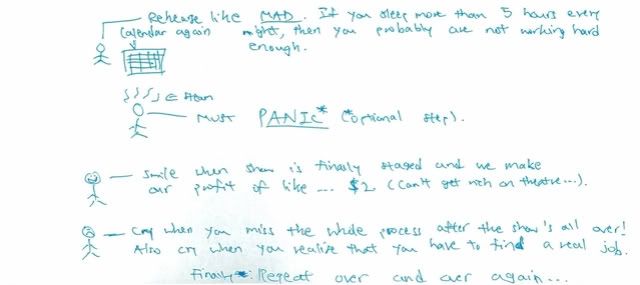 Rehearse like MAD. If you sleep more than 5 hours every
calendar again night, then you probably are not working hard
enough.
steam
MUST PANIC* *(optional step).
Smile when show is finally staged and we make
our profit of like ... $2 (can't get rich on theatre...).
Cry when you miss the whole process after the show's all over!
Also cry when you realize that you have to find a real job.
Finally*: Repeat over and over again...